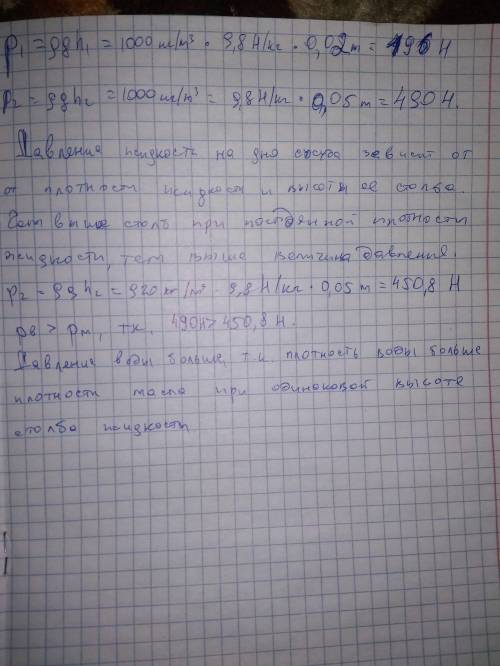 p₁ = ρgh₁ = 1000 кг/m³ · 9,8 H/кг · 0,02 m = 196 H
p₂ = ρgh₂ = 1000 кг/m³ = 9,8 H/кг · 0,05 m = 490 H.
Давление жидкости на дно сосуда зависит от
от плотности жидкости и высоты её столба.
Чем выше столб при постоянной плотности
жидкости, тем выше величина давления.
p₂ = ρgh₂ = 920 кг/m³ · 9,8 H/кг · 0,05 m = 450,8 H
pв > pм, т.к. 490H > 450,8 H.
Давление воды больше, т.к. плотность воды больше
плотности масла при одинаковой высоте
столба жидкости